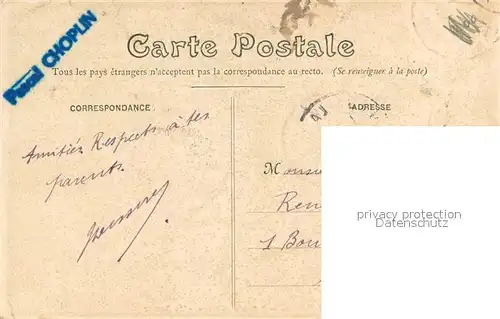 Pascal CHOPLIN
Carte Postale
Tous les pays étrangers n'acceptent pas la correspondance au recto. (Se renseigner à la poste)
CORRESPONDANCE
ADRESSE
Amitiés Respects à tes
parents
Monsie
Ren
1 Bou
privacy protection
Datenschutz